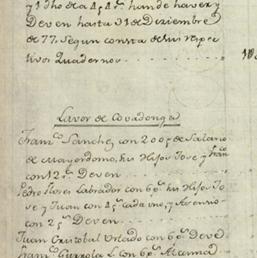 y 1 dho de a 4 p 4 r.s han de haver y
Deven hasta 31 de Diziembre
de 77. Segun consta de sus respec
tivos Quadernos
Lavor de Covadonga
Fran.co Sanchez con 200 p.s de Salario
de Mayordomo, sus Hijos Jose y Fran.co
con 12 p.s Deven
Pedro Flores Labrador con 6 p.s sus Hijos Jo
se y Juan con 4 p.s cada uno, y
con 2 p.s Deven
Juan Cristobal Urtado con 6 p.s Deve
Fran.co con 6 p.s